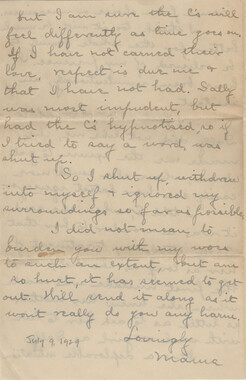 but I am sure the C's will
feel differently as time goes on
If I have not earned their
love, respect is due me &
that I have not had. Dally
was most impudent, but
had the C's hypnotized, so if
I tried to say a word, was
shut up.
So I shut up, withdrew
into myself & ignored my
surroundings so far as possible
I did not mean to
burden you with my woes
to such an extent, but am
so hurt, it has seemed to get
out. Will send it along as it
won't really do you any harm.
Lovingly
July 9 1924
Mama